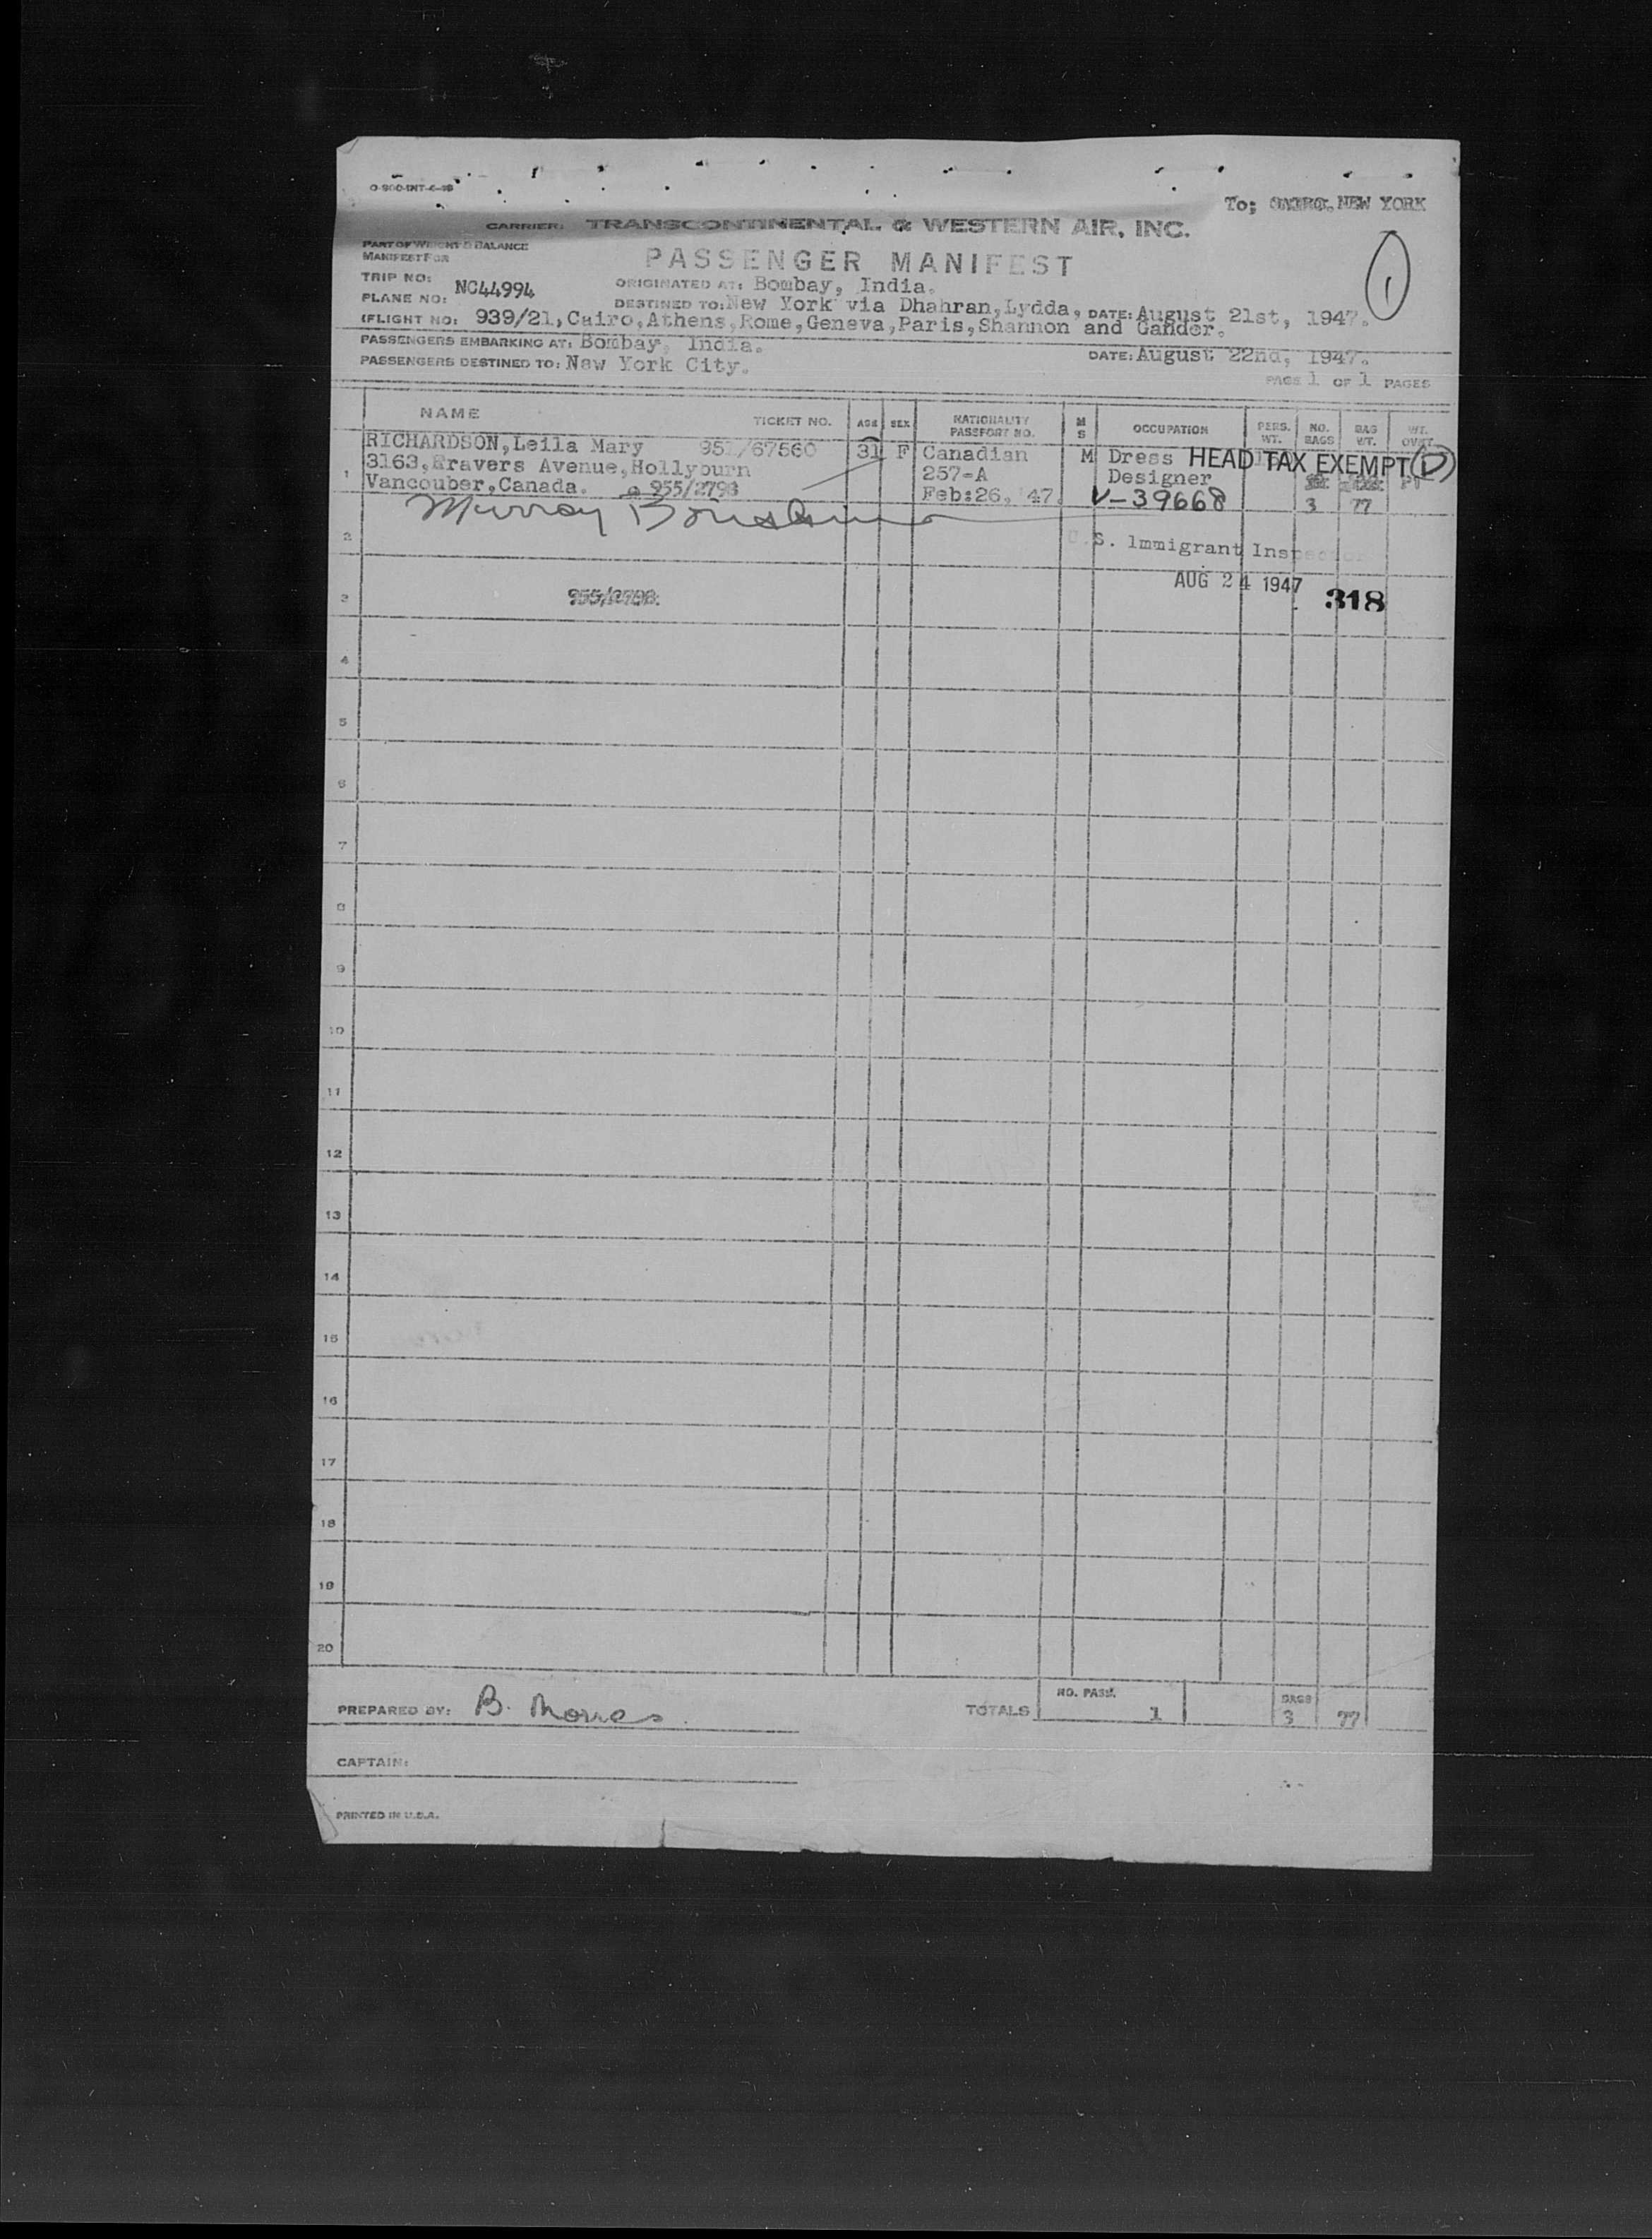 O-900-INT-6-46
To; CAIRO. NEW YORK
CARRIER: TRANSCONTINENTAL & WESTERN AIR, INC.
PART OF WEIGHT & BALANCE
MANIFEST FOR
PASSENGER MANIFEST
1
TRIP NO:
PLANE NO: NC44994
ORIGINATED AT: Bombay, India.
DESTINED TO: New York via Dhahran, Lydda, DATE: August 21st, 1947.
(FLIGHT NO: 939/21, Cairo, Athens, Rome, Geneva, Paris, Shannon and Gander.
PASSENGERS EMBARKING AT: Bombay, India.
DATE: August 22nd, 1947.
PASSENGERS DESTINED TO: New York City.
PAGE 1 OF 1 PAGES
NAME TICKET NO. AGE SEX NATIONALITY PASSPORT NO. M S OCCUPATION PERS. WT. NO. BAGS BAG WT. WT. OVWT.
1 RICHARDSON, Leila Mary 951/67560 31 F Canadian M Dress HEAD TAX EXEMPT (D)
3163, Travers Avenue, Hollyburn 257-A Designer
Vancouber, Canada. 955/2798 Feb:26, '47. V-39668 3 77
Murray
2 U.S. Immigrant Inspector
AUG 24 1947 318
3 955/2798.
4
5
6
7
8
9
10
11
12
13
14
15
16
17
18
19
20
PREPARED BY: B. TOTALS NO. PASS. 1 BAGS 3 77
CAPTAIN:
PRINTED IN U.S.A.